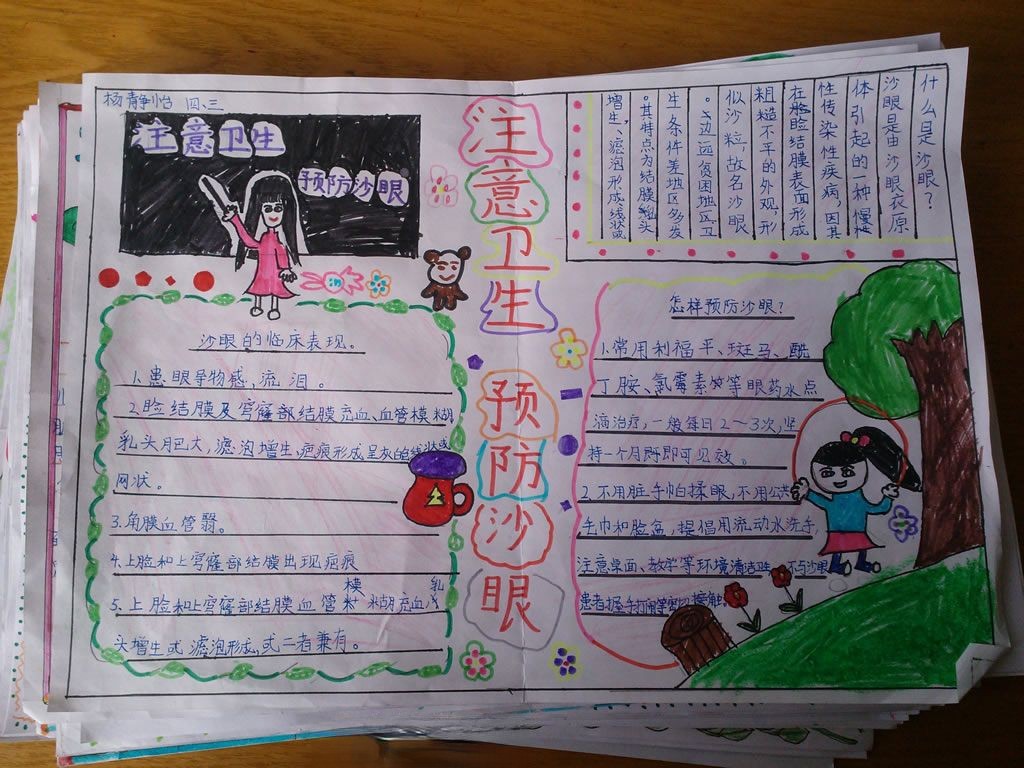 杨静怡 四、三
注意卫生
预防沙眼
注意卫生 预防沙眼
什么是沙眼？
沙眼是由沙眼衣原
体引起的一种慢
性传染性疾病，因其
在脸睑结膜表面形成
粗糙不平的外观，形
似沙粒，故名沙眼
。边远贫困地区、卫
生条件差地区多发
。其特点为结膜乳头
增生、滤泡形成、
沙眼的临床表现。
1.患眼异物感，流泪。
2.睑结膜及穹窿部结膜充血、血管模糊，
乳头肥大，滤泡增生、疤痕形成呈灰白线状或
网状。
3.角膜血管翳。
4.上脸和上穹窿部结膜出现疤痕
5.上脸和上穹窿部结膜血管模糊充血，乳
头增生或滤泡形成，或二者兼有。
怎样预防沙眼？
1.常用利福平、斑马、酰
丁胺、氯霉素等眼药水点
滴治疗，一般每日2～3次，坚
持一个月时即可见效。
2.不用脏手帕揉眼，不用公共
毛巾和脸盆，提倡用流动水洗手，
注意桌面、教学等环境清洁，不与沙眼
患者握手接触。